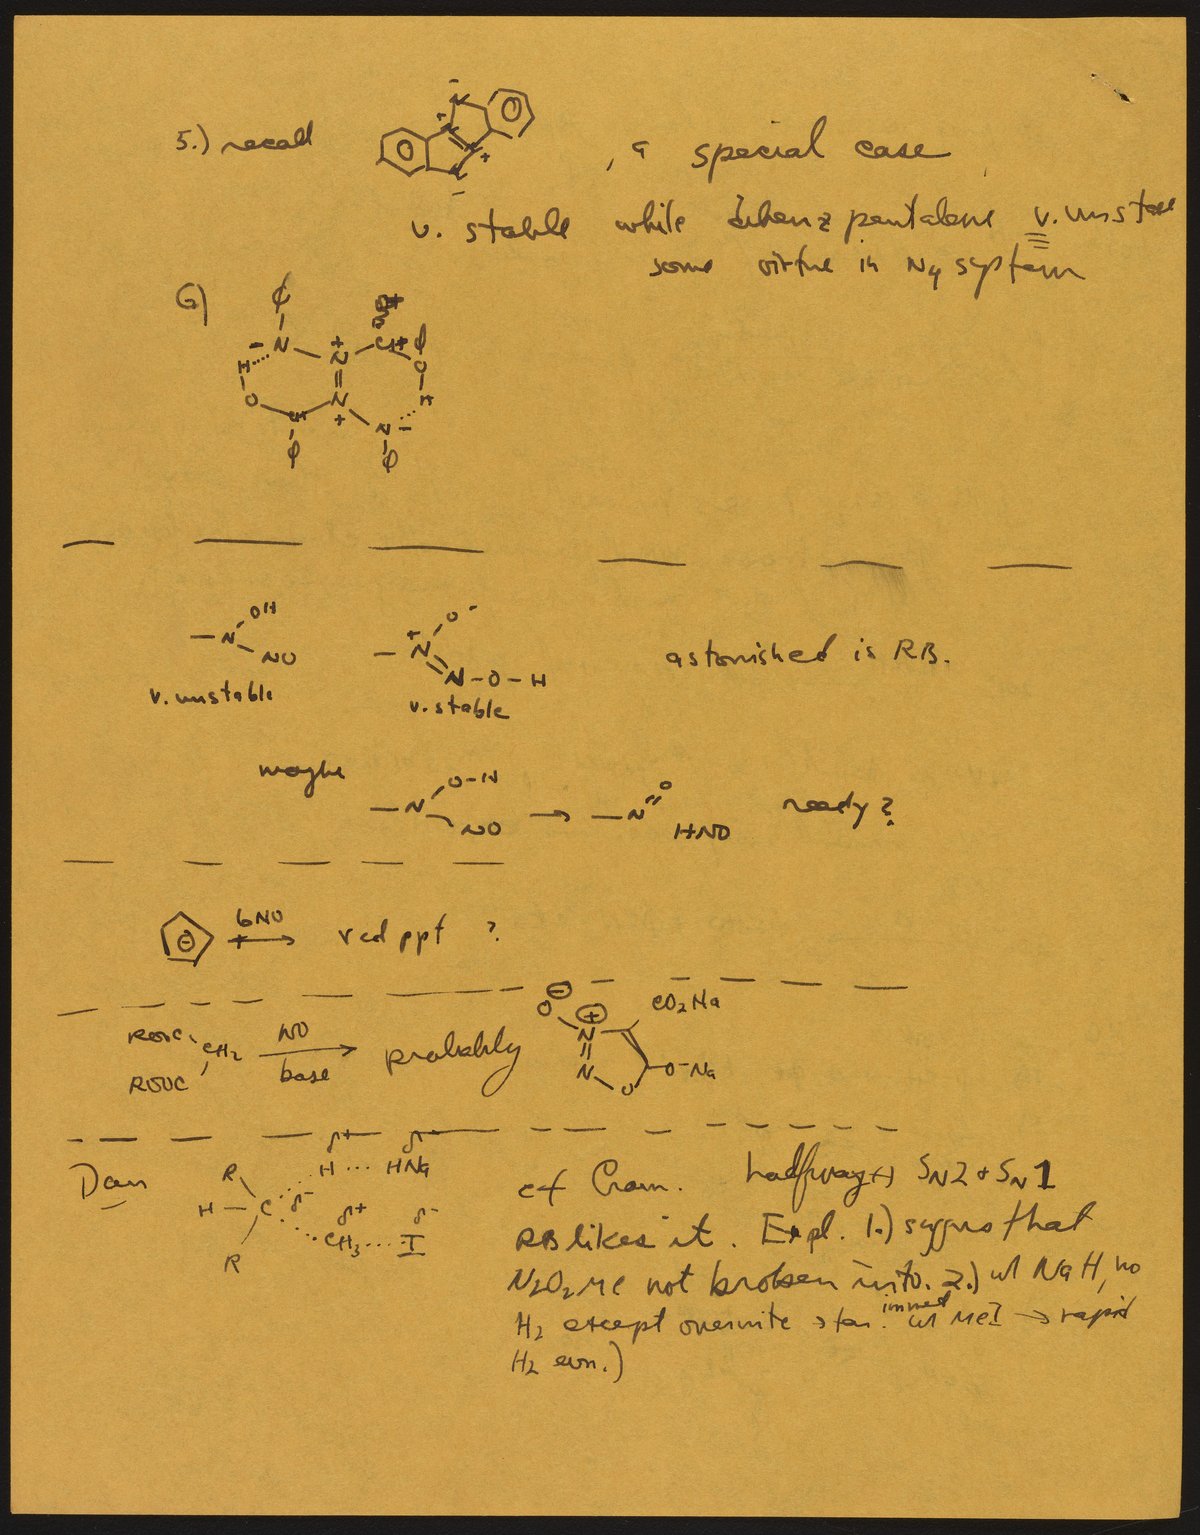 5.) recall , a special case
v. stable while dibenzpentalene v. unstable
some virtue in N4 system
6)
φ
- N
+ N
C + φ
H
O
O
N +
H
N -
φ
φ
OH
N
NO
v. unstable
O -
+ N
N - O - H
v. stable
astonished is RB.
maybe
O-H
N
NO
→
N
O
HNO
ready?
6NO
red ppt ?
ROOC
CH2
ROOC
NO
base
probably
O ⊖
⊕
N
N
O
CO2Na
O-Na
Dan
R
H - C
R
δ-
δ+ δ-
H ... HNa
δ+ δ-
CH3 ... I
cf Cram. halfway + SN2 + SN1
RB likes it. Expl. 1.)
N2O2Me not broken into. 2.) w/ NaH, no
H2 except overnite immed w/ MeI → rapid
H2 evn.)